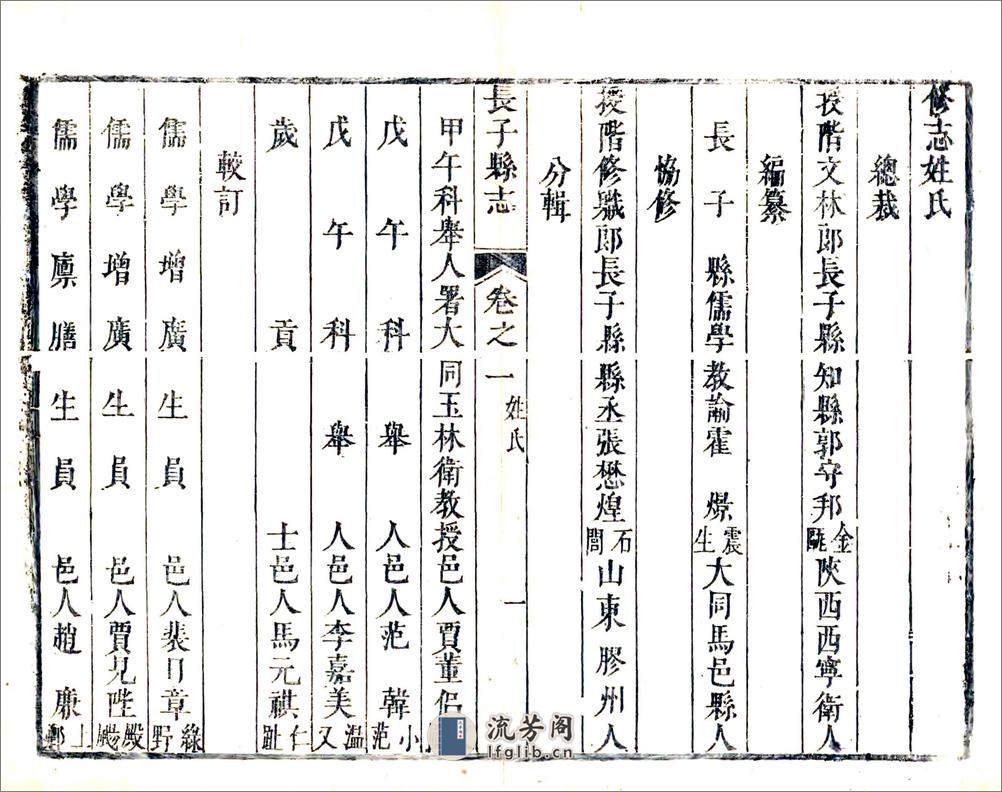 修志姓氏
總裁
授階文林郎長子縣知縣郭守邦金陡陝西西寧衛人
編纂
長子縣儒學教諭霍燝震生大同馬邑縣人
恊修
授階修職郎長子縣縣丞張懋煌石閭山東膠州人
分輯
長子縣志 卷之一 姓氏 一
甲午科舉人署大同玉林衛教授邑人賈董侶
戊午科舉人邑人范韓小范
戊午科舉人邑人李嘉美溫又
歲貢士邑人馬元祺仁趾
較訂
儒學增廣生員邑人裴日章綠野
儒學增廣生員邑人賈兄陞殿颺
儒學廪膳生員邑人趙廉上鄴
流芳阁
lfglib.cn